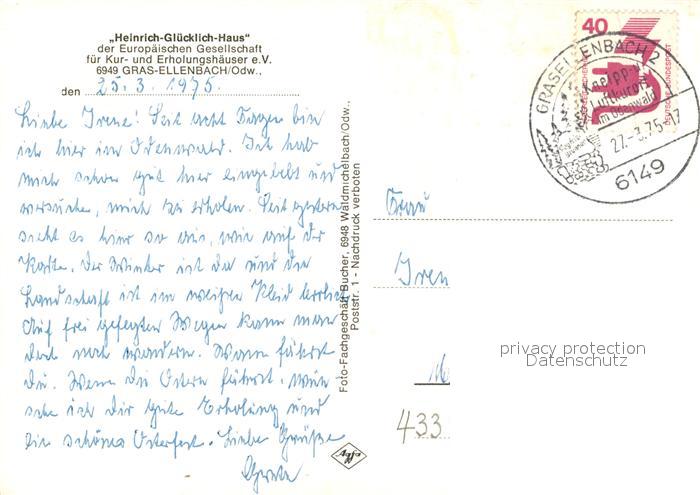 „Heinrich-Glücklich-Haus"
der Europäischen Gesellschaft
für Kur- und Erholungshäuser e.V.
6949 GRAS-ELLENBACH/Odw.,
den 25. 3. 1975.
Liebe Irene! Seit acht Tagen bin
ich hier im Odenwald. Ich hab
mich schon gut hier eingelebt und
versuche, mich zu erholen. Seit gestern
sieht es hier so aus, wie auf der
Karte. Der Winter ist da und die
Landschaft ist im weißen Kleid herrlich.
Auf frei gefegten Wegen kann man
dort wandern. Wann fährst
Du. Wenn Du Ostern fährst, wün
sche ich Dir gute Erholung und
ein schönes Osterfest. Liebe Grüße
Foto-Fachgeschäft Bucher, 6948 Waldmichelbach/Odw.,
Poststr. 1 - Nachdruck verboten
40
DEUTSCHE BUNDESPOST
GRASELLENBACH 2
Kneipp-u.
Luftkurort
im Odenwald
27.-3.75-17
6149
Frau
Iren
privacy protection
Datenschutz
433